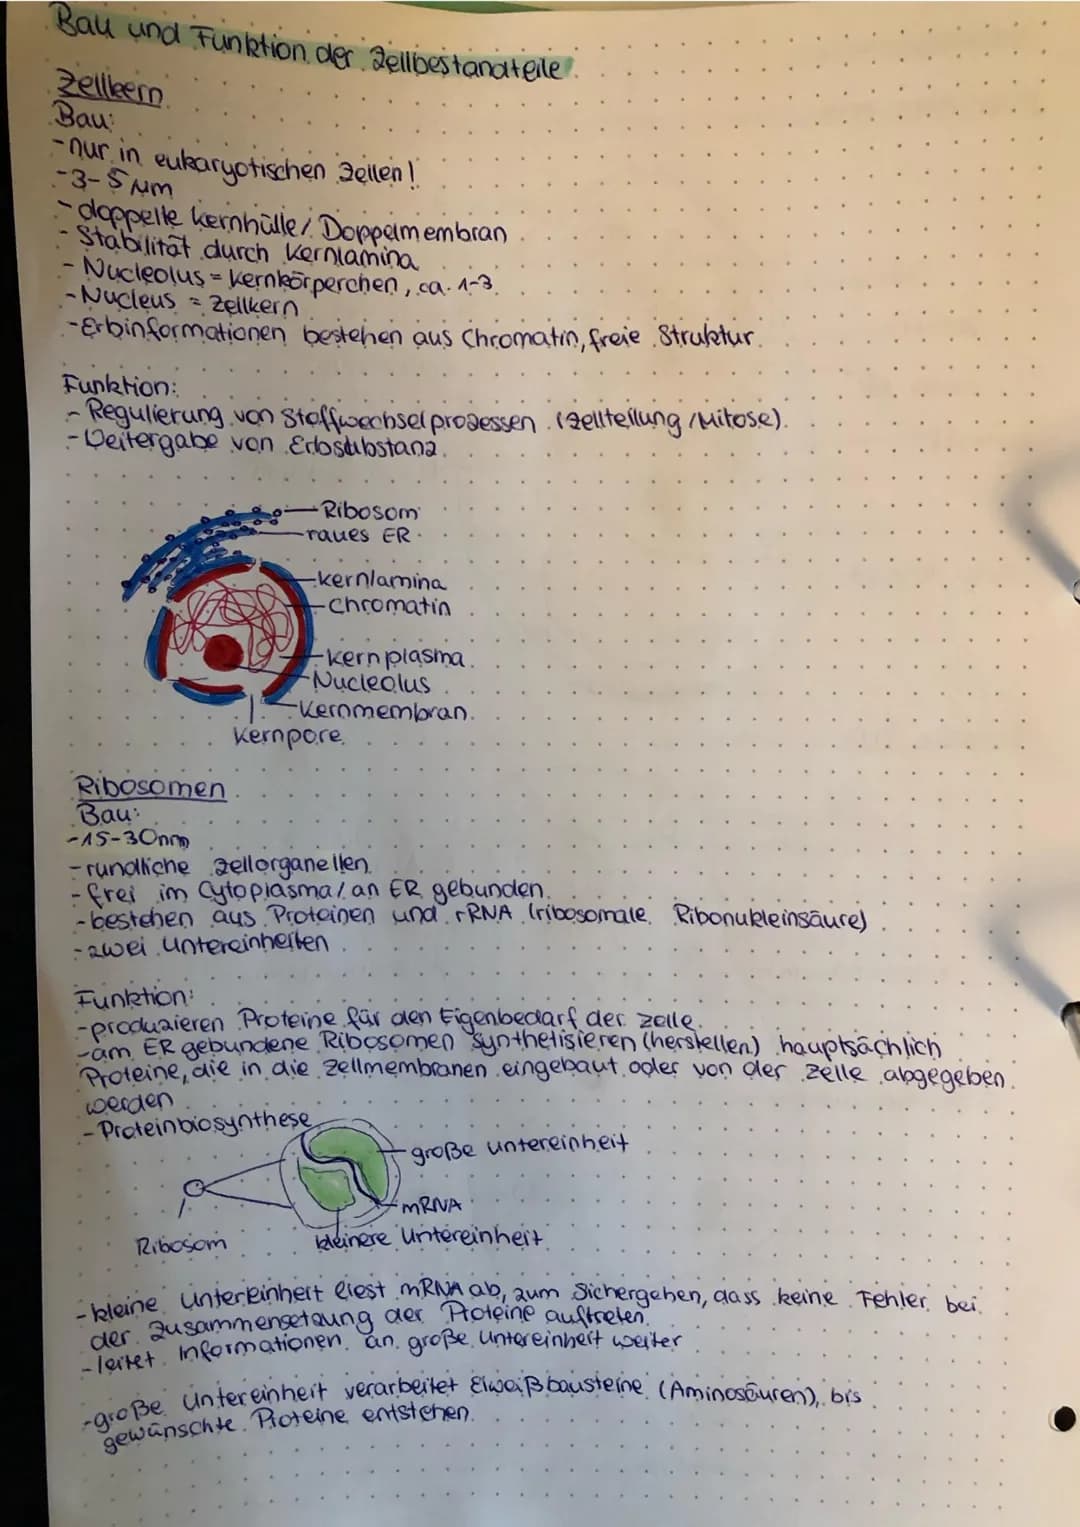 Bau und Funktion der Zellbestandteile
Zellkern
Bau:
-nur in eukaryotischen Zellen!
-3-5 µm
-doppelte Kernhülle / Doppelmembran
-Stabilität durch Kernlamina
-Nucleolus = Kernkörperchen, ca. 1-3
-Nucleus = Zellkern
-Erbinformationen bestehen aus Chromatin, freie Struktur
Funktion:
-Regulierung von Stoffwechselprozessen (Zellteilung / Mitose)
-Weitergabe von Erbsubstanz
Ribosom
raues ER
Kernlamina
Chromatin
Kernplasma
Nucleolus
Kernmembran
Kernpore
Ribosomen
Bau:
-15-30nm
-rundliche Zellorganellen
-frei im Cytoplasma / an ER gebunden
-bestehen aus Proteinen und rRNA (ribosomale Ribonukleinsäure)
-zwei Untereinheiten
Funktion:
-produzieren Proteine für den Eigenbedarf der Zelle
-am ER gebundene Ribosomen synthetisieren (herstellen) hauptsächlich
Proteine, die in die Zellmembranen eingebaut oder von der Zelle abgegeben
werden
-Proteinbiosynthese
große Untereinheit
mRNA
Ribosom
kleinere Untereinheit
-kleine Untereinheit liest mRNA ab, zum Sichergehen, dass keine Fehler bei
der Zusammensetzung der Proteine auftreten
-leitet Informationen an große Untereinheit weiter
-große Untereinheit verarbeitet Eiweißbausteine (Aminosäuren), bis
gewünschte Proteine entstehen